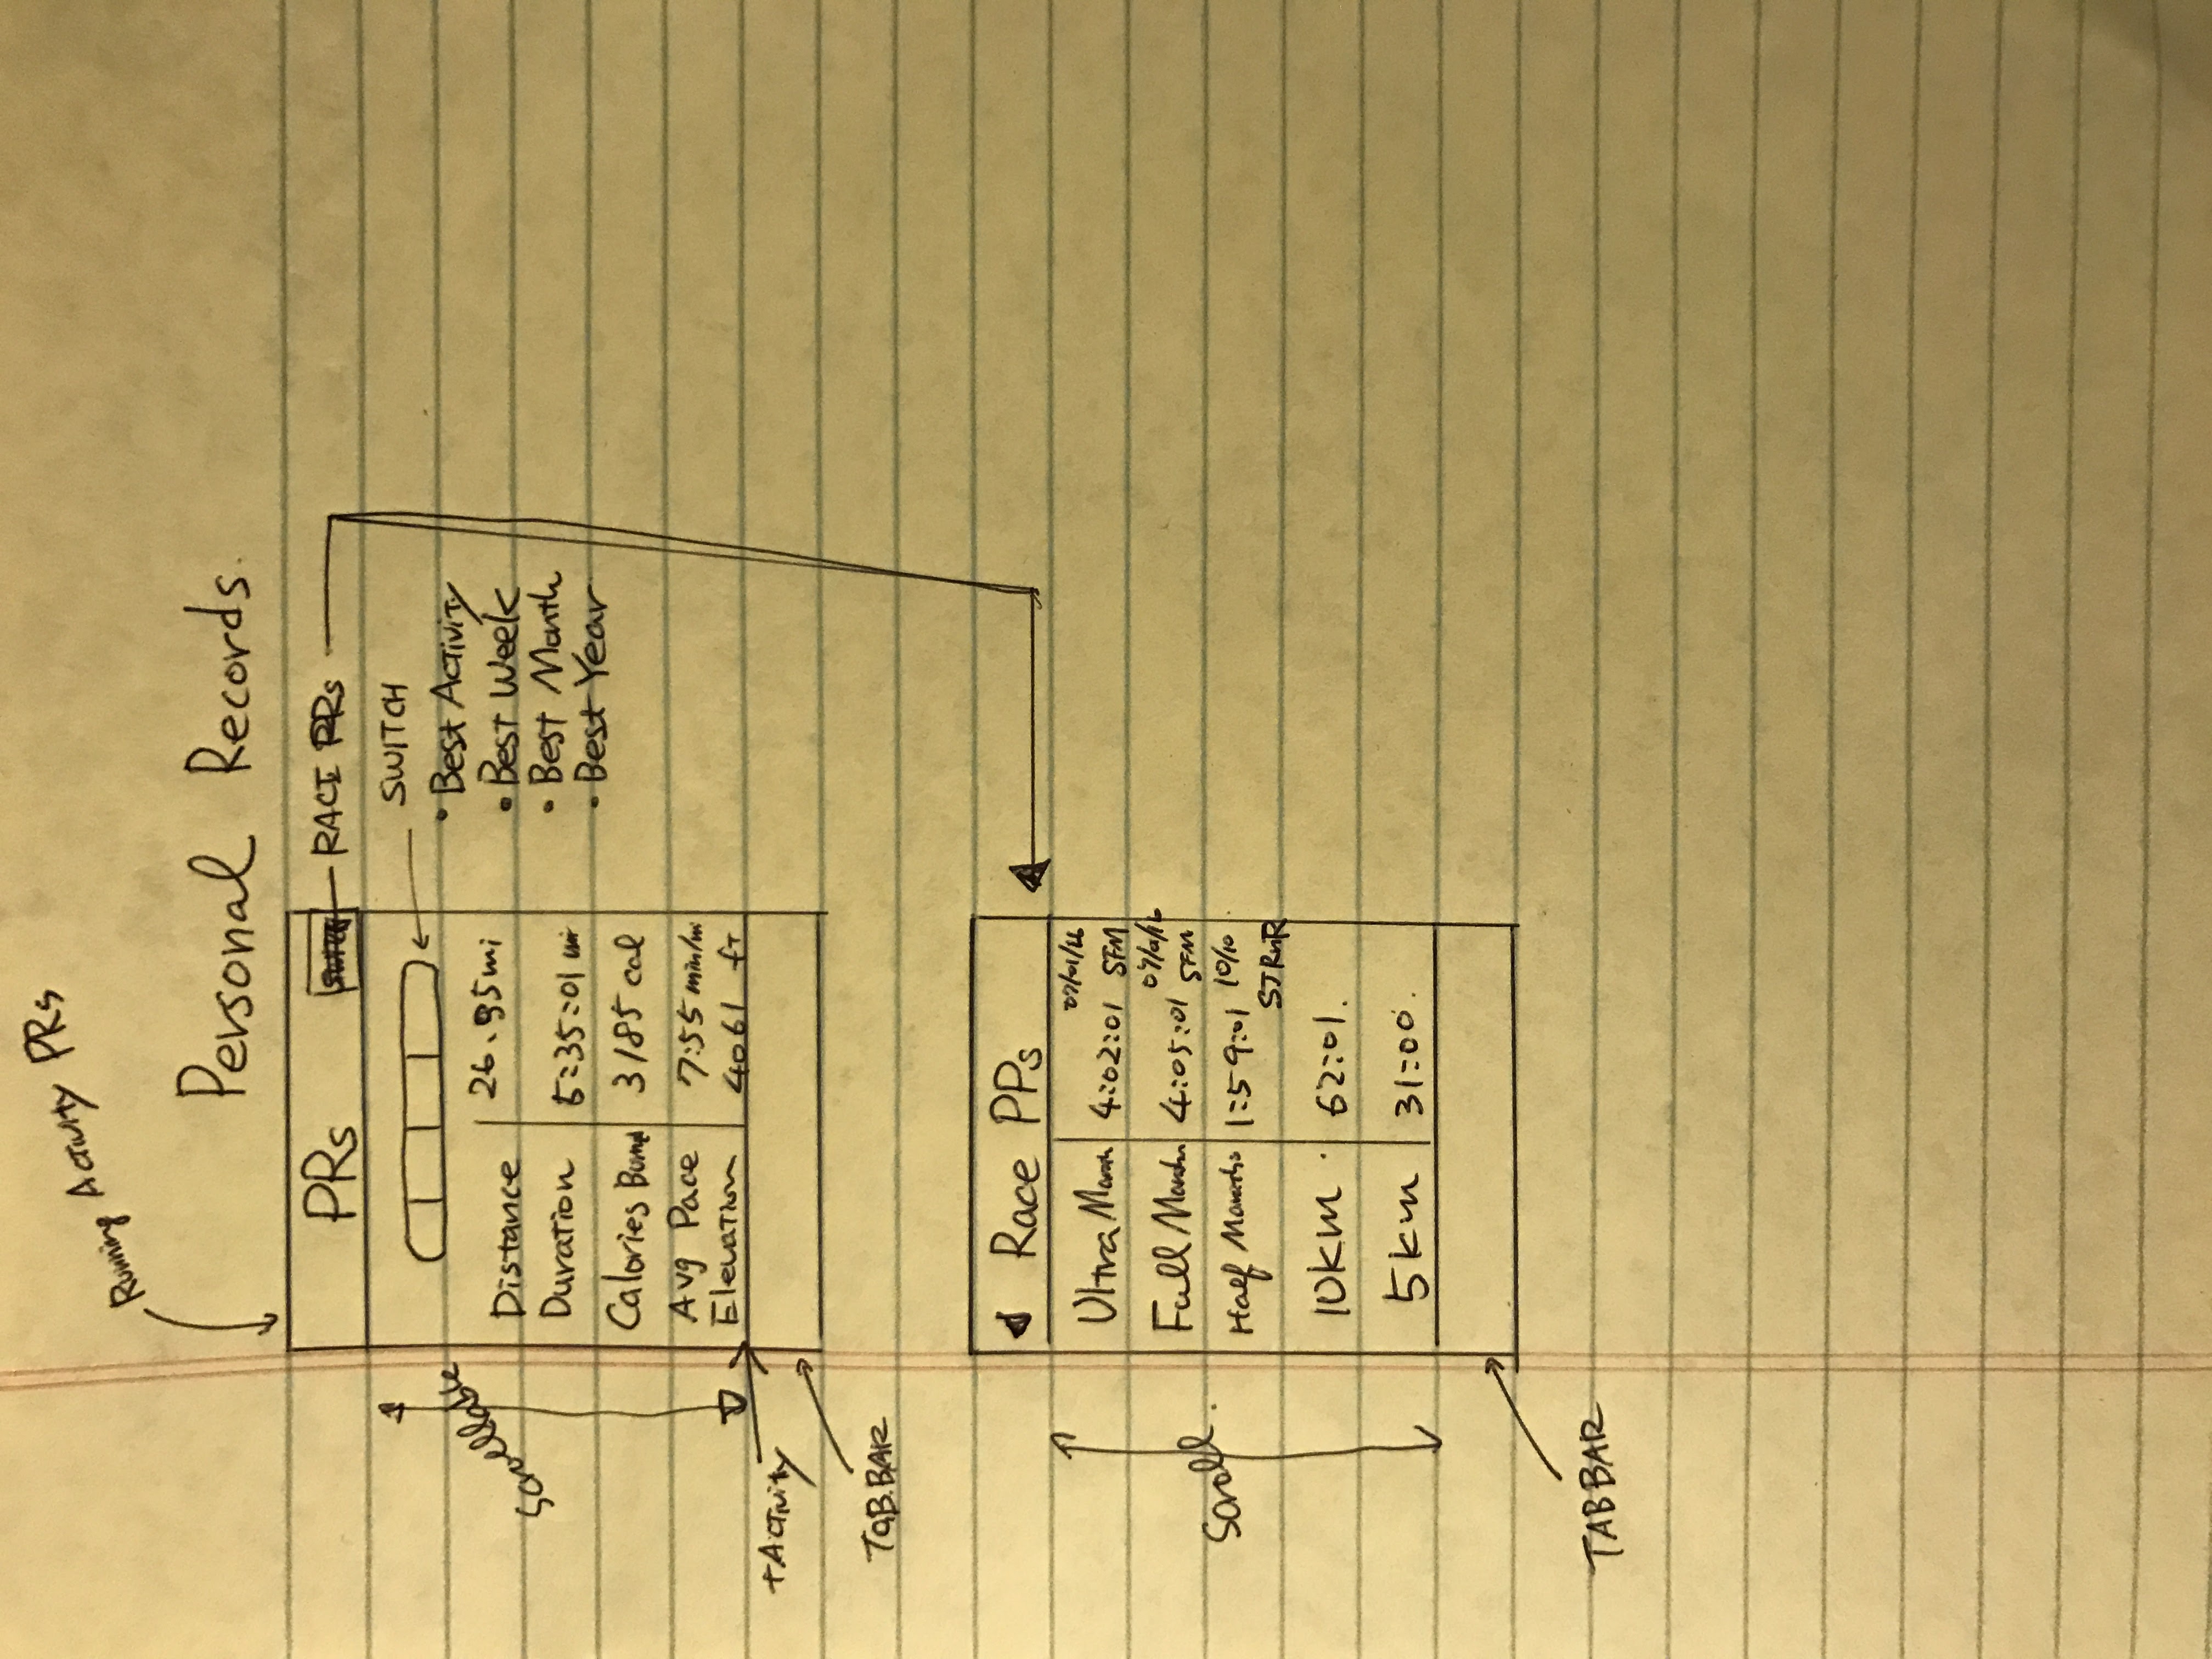 Running Activity PRs
Personal Records.
PRs
RACE PRs
SWITCH
• Best Activity
• Best Week
• Best Month
• Best Year
Scrollable
Distance 26.95mi
Duration 5:35:01
Calories Burned 3185 cal
Avg Pace 7:55 min/mi
Elevation 4061 ft
+Activity
TaB.BAR
Race PPs
Ultra 4:02:01 SFM
Full 4:05:01 SFM
Half 1:59:01 10/10
STRnR
10km 62:01.
5km 31:00.
Scroll.
TAB BAR